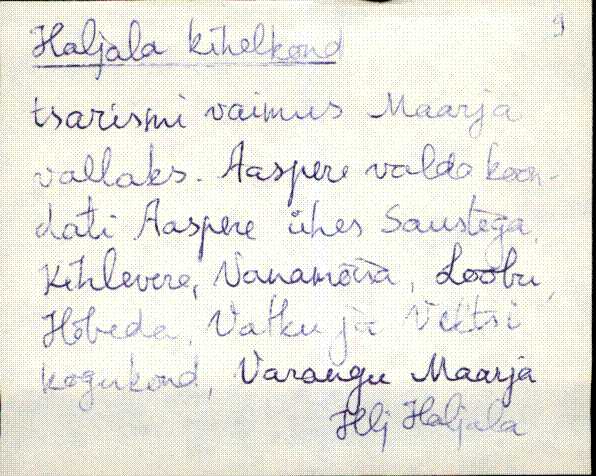 9
Haljala kihelkond
tsarismi vaimus Maarja
vallaks. Aaspere valda koon-
dati Aaspere ühes Saustega,
Kihlevere, Vanamõisa, Loobu,
Hõbeda, Vatku ja Vihtsi
kogukond, Varangu Maarja
Hlj Haljala